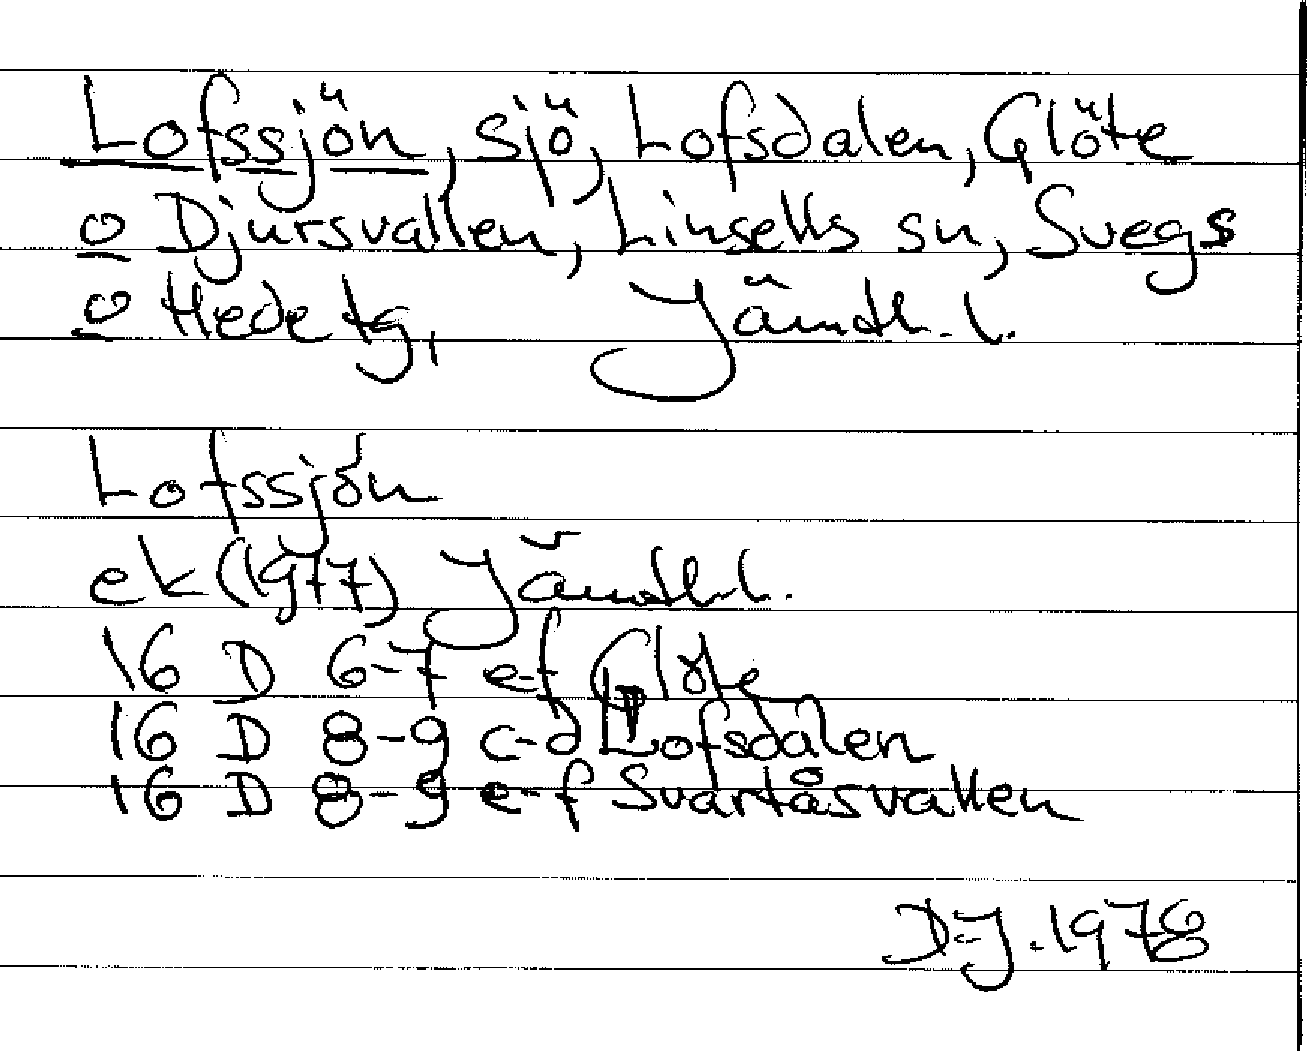 Lofssjön, sjö, Lofsdalen, Glöte
o Djursvallen, Linsells sn, Svegs
o Hede tg, Jämtl. l.
Lofssjön
ek (1977) Jämtl. l.
16 D 6-7 e-f Glöte
16 D 8-9 c-d Lofsdalen
16 D 8-9 e-f Svartåsvallen
D-J. 1978